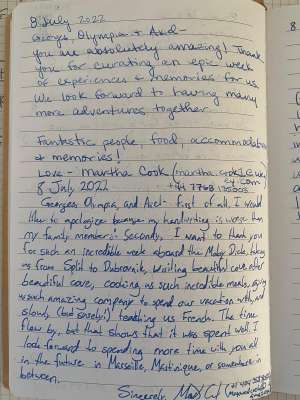 8 July 2022
Georges, Olympia & Axel -
you are absolutely amazing! Thank
you for curating an epic week
of experiences & memories for us.
We look forward to having many
more adventures together.
Fantastic people, food, accommodation
& memories!
Love - Martha Cook
8 July 2022
Georges, Olympia, and Axel - first of all, I would
like to apologize because my handwriting is worse than
my family members! Secondly, I want to thank you
for such an incredible week aboard the Moby Dick, taking
us from Split to Dubrovnik, visiting beautiful cove after
beautiful cove, cooking us such incredible meals, being
such amazing company to spend our vacation with, and
slowly (but surely!) teaching us French. The time
flew by, but that shows that it was spent well. I
look forward to spending more time with you all
in the future in Marseille, Martinique, or somewhere in
between.
Sincerely,